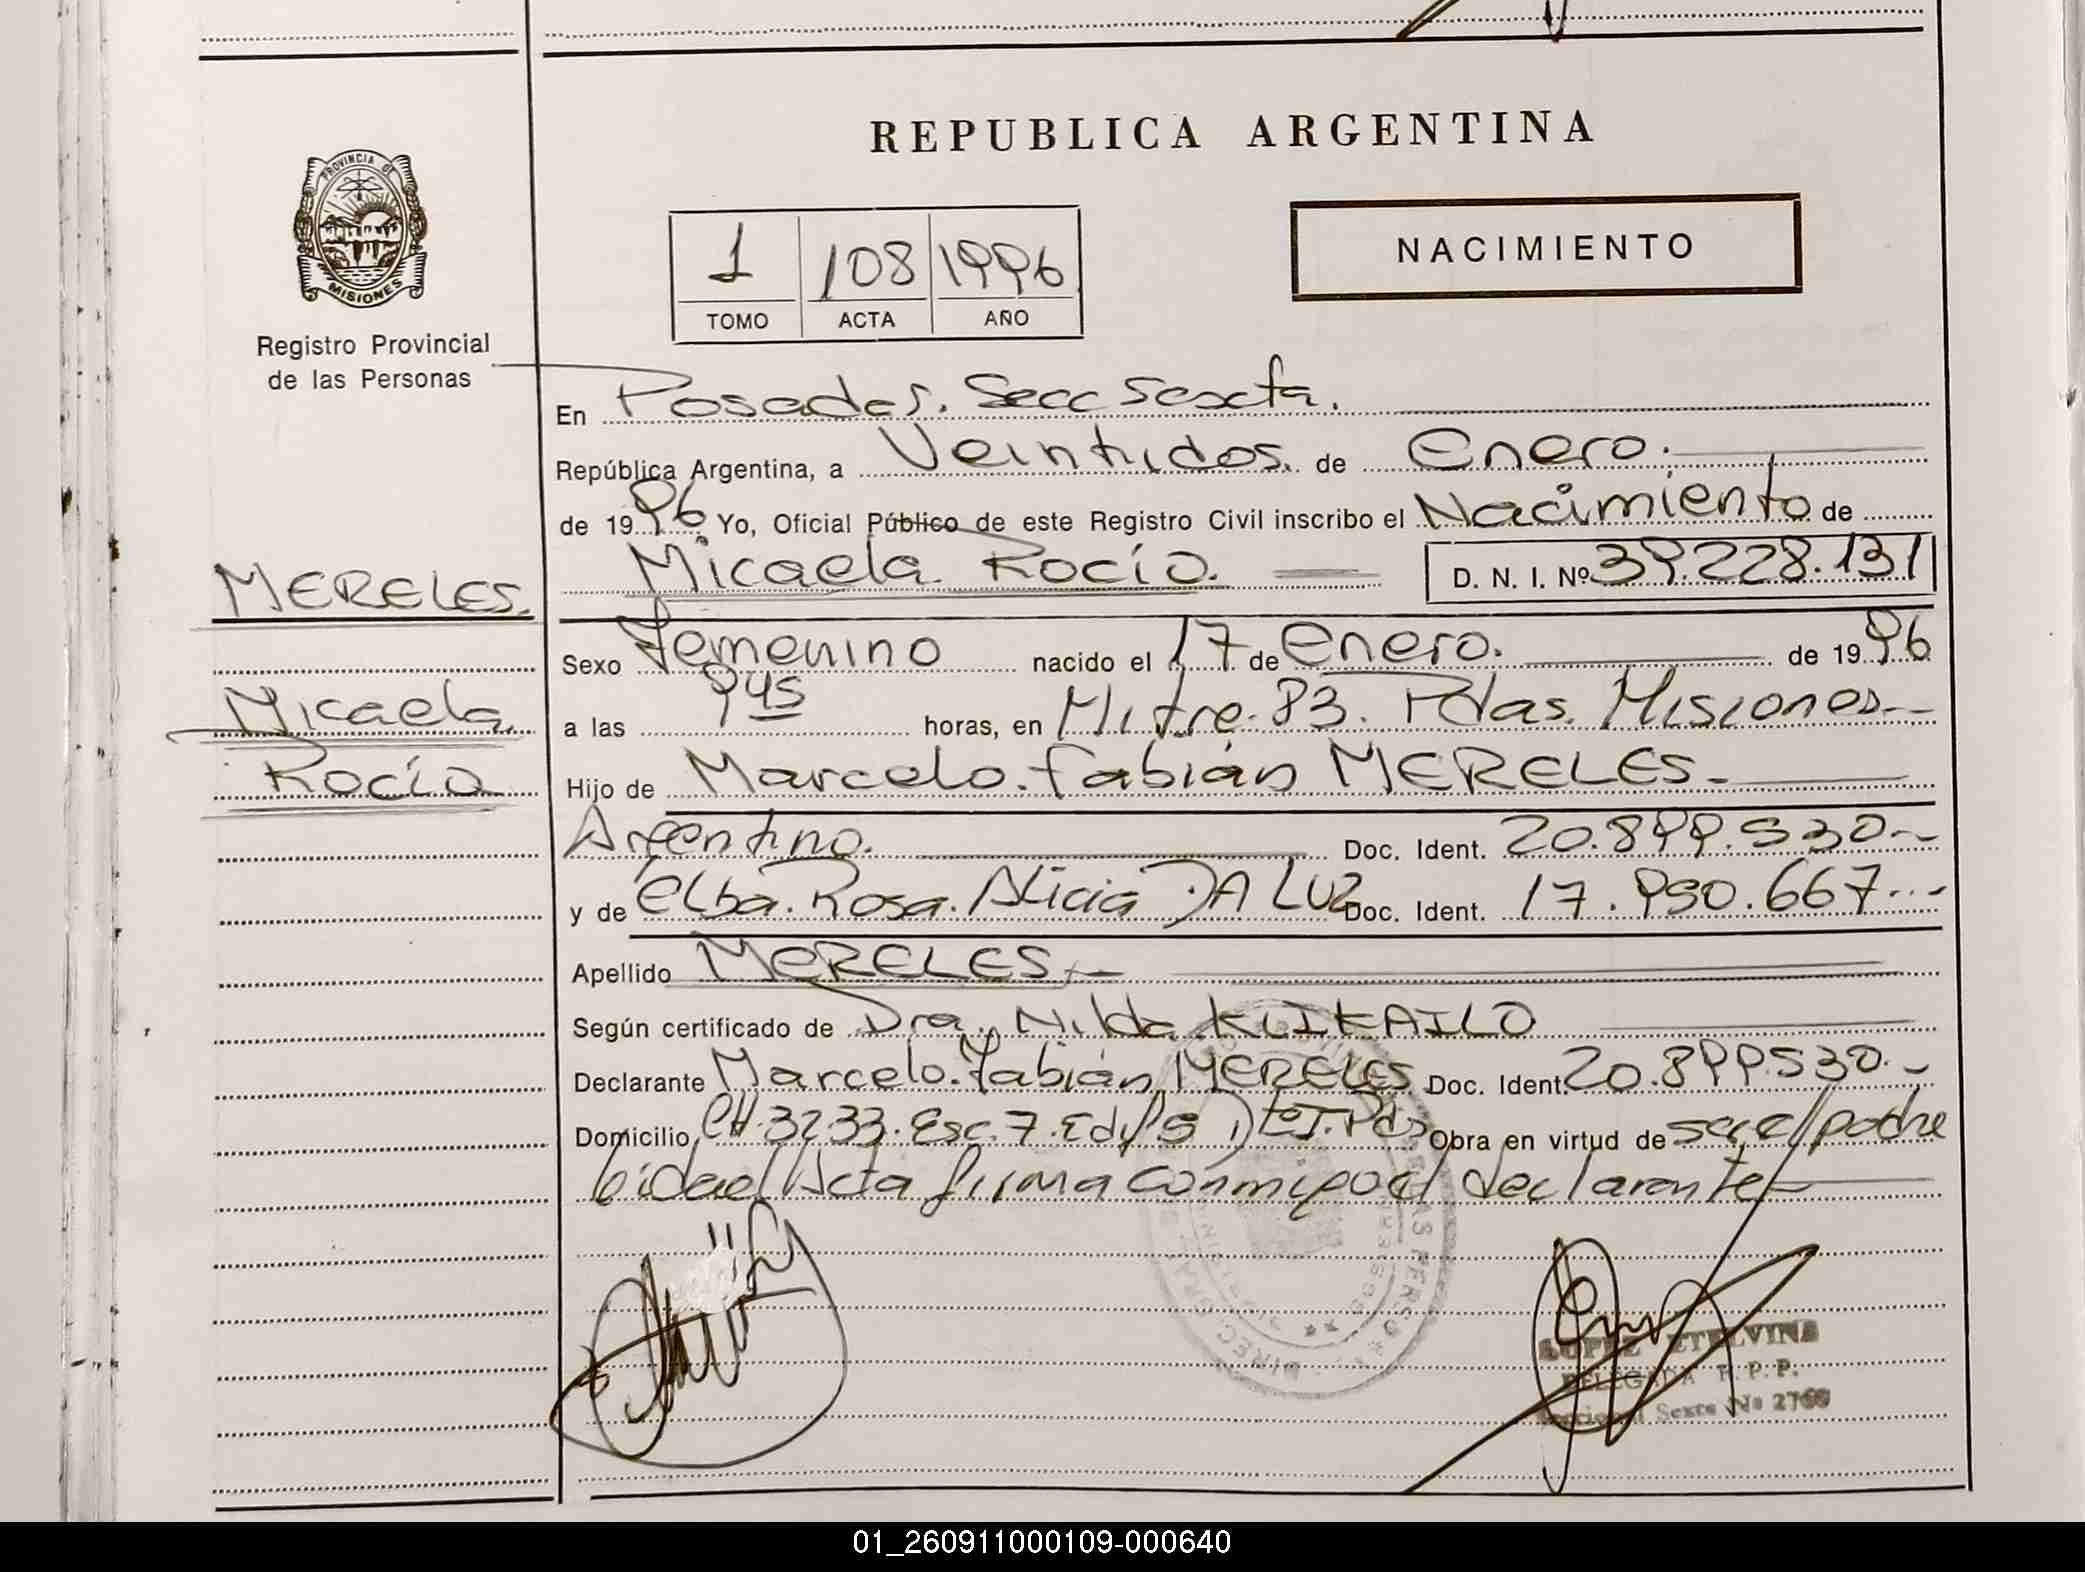 REPUBLICA ARGENTINA
PROVINCIA DE
MISIONES
Registro Provincial
de las Personas
1 108 1996
TOMO ACTA AÑO
NACIMIENTO
En Posadas. Secc Sexta.
República Argentina, a Veintidos. de Enero.
de 1996 Yo, Oficial Público de este Registro Civil inscribo el Nacimiento de
Micaela Rocío. D. N. I. Nº 39.228.131
MERELES.
Sexo Femenino nacido el 17 de Enero. de 1996
Micaela
a las 945 horas, en Mitre. 83. Pdas. Misiones
Rocío
Hijo de Marcelo. Fabián MERELES
Argentino. Doc. Ident. 20.899.530
y de Elba. Rosa. Alicia DA LUZ Doc. Ident. 17.950.667
Apellido MERELES
Según certificado de Dra. Nilda KLIKAILO
Declarante Marcelo. Fabián MERELES Doc. Ident. 20.899.530
Domicilio CH. 3233. Esc. 7. Obra en virtud de ser el padre
Acta firma conmigo el declarante
LOPEZ ETELVINA
DELEGADA R. P. P.
Seccional Sexta Nº 2760
01_260911000109-000640